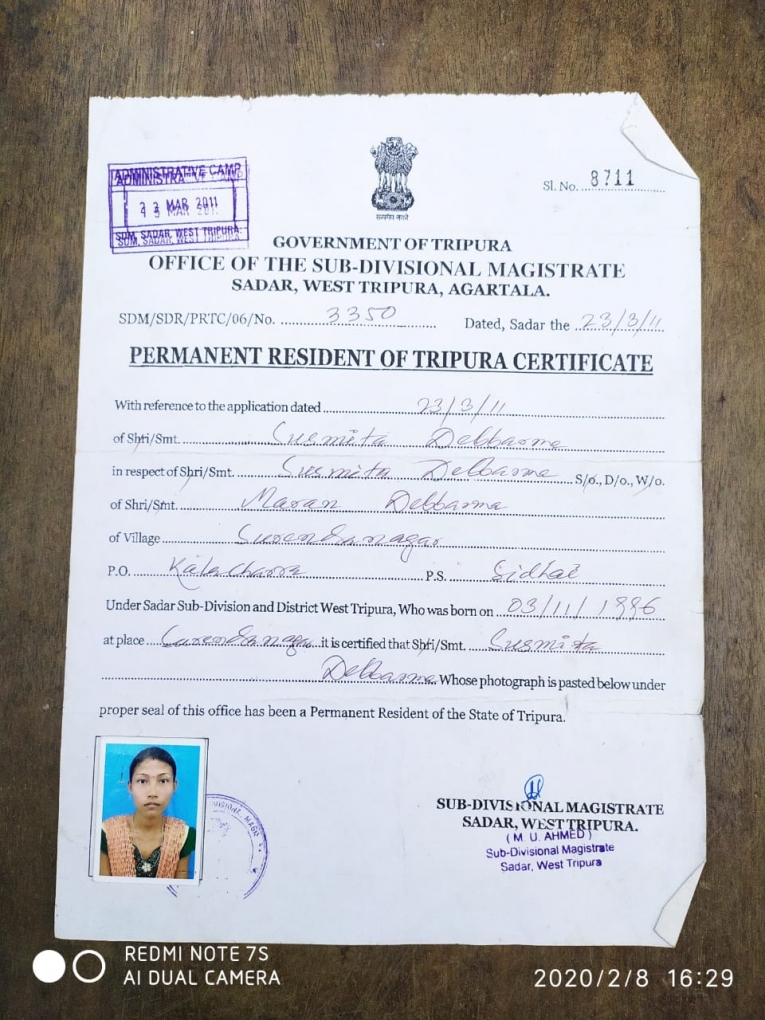 ADMINISTRATIVE CAMP
23 MAR 2011
SDM, SADAR, WEST TRIPURA.
सत्यमेव जयते
Sl. No. 8711
GOVERNMENT OF TRIPURA
OFFICE OF THE SUB-DIVISIONAL MAGISTRATE
SADAR, WEST TRIPURA, AGARTALA.
SDM/SDR/PRTC/06/No. 3350 Dated, Sadar the 23/3/11
PERMANENT RESIDENT OF TRIPURA CERTIFICATE
With reference to the application dated 23/3/11
of Shri/Smt. Susmita Debbarma
in respect of Shri/Smt. Susmita Debbarma S/o., D/o., W/o.
of Shri/Smt. Maran Debbarma
of Village Surendranagar
P.O. Kalacharra P.S. Sidhai
Under Sadar Sub-Division and District West Tripura, Who was born on 03/11/1996
at place Surendranagar it is certified that Shri/Smt. Susmita
Debbarma Whose photograph is pasted below under
proper seal of this office has been a Permanent Resident of the State of Tripura.
SUB-DIVISIONAL MAGISTRATE
SADAR, WEST TRIPURA.
( M. U. AHMED )
Sub-Divisional Magistrate
Sadar, West Tripura
REDMI NOTE 7S
AI DUAL CAMERA
2020/2/8 16:29